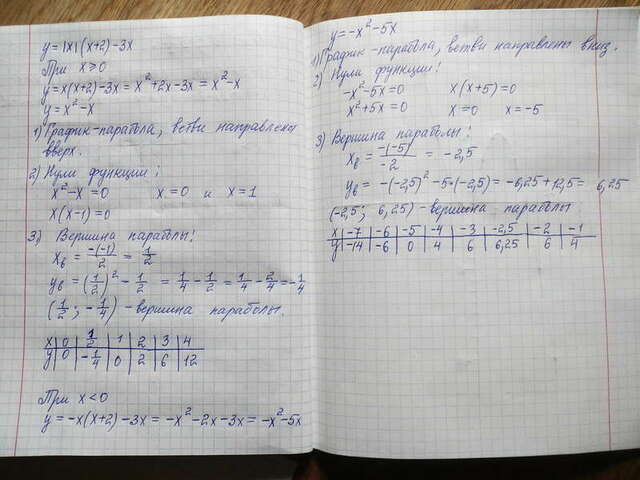 y=|x|(x+2)-3x
При x≥0
y=x(x+2)-3x=x²+2x-3x=x²-x
y=x²-x
1) График-парабола, ветви направлены
вверх.
2) Нули функции:
x²-x=0 x=0 и x=1
x(x-1)=0
3) Вершина параболы!
xв=-(-1)/2=1/2
yв=(1/2)²-1/2=1/4-1/2=1/4-2/4=-1/4
(1/2; -1/4)-вершина параболы.
x|0|1/2|1|2|3|4
y|0|-1/4|0|2|6|12
При x<0
y=-x(x+2)-3x=-x²-2x-3x=-x²-5x
y=-x²-5x
1) График-парабола, ветви направлены вниз.
2) Нули функции!
-x²-5x=0 x(x+5)=0
x²+5x=0 x=0 x=-5
3) Вершина параболы!
xв=-(-5)/-2=-2,5
yв=-(-2,5)²-5·(-2,5)=-6,25+12,5=6,25
(-2,5; 6,25)-вершина параболы
x|-7|-6|-5|-4|-3|-2,5|-2|-1
y|-14|-6|0|4|6|6,25|6|4